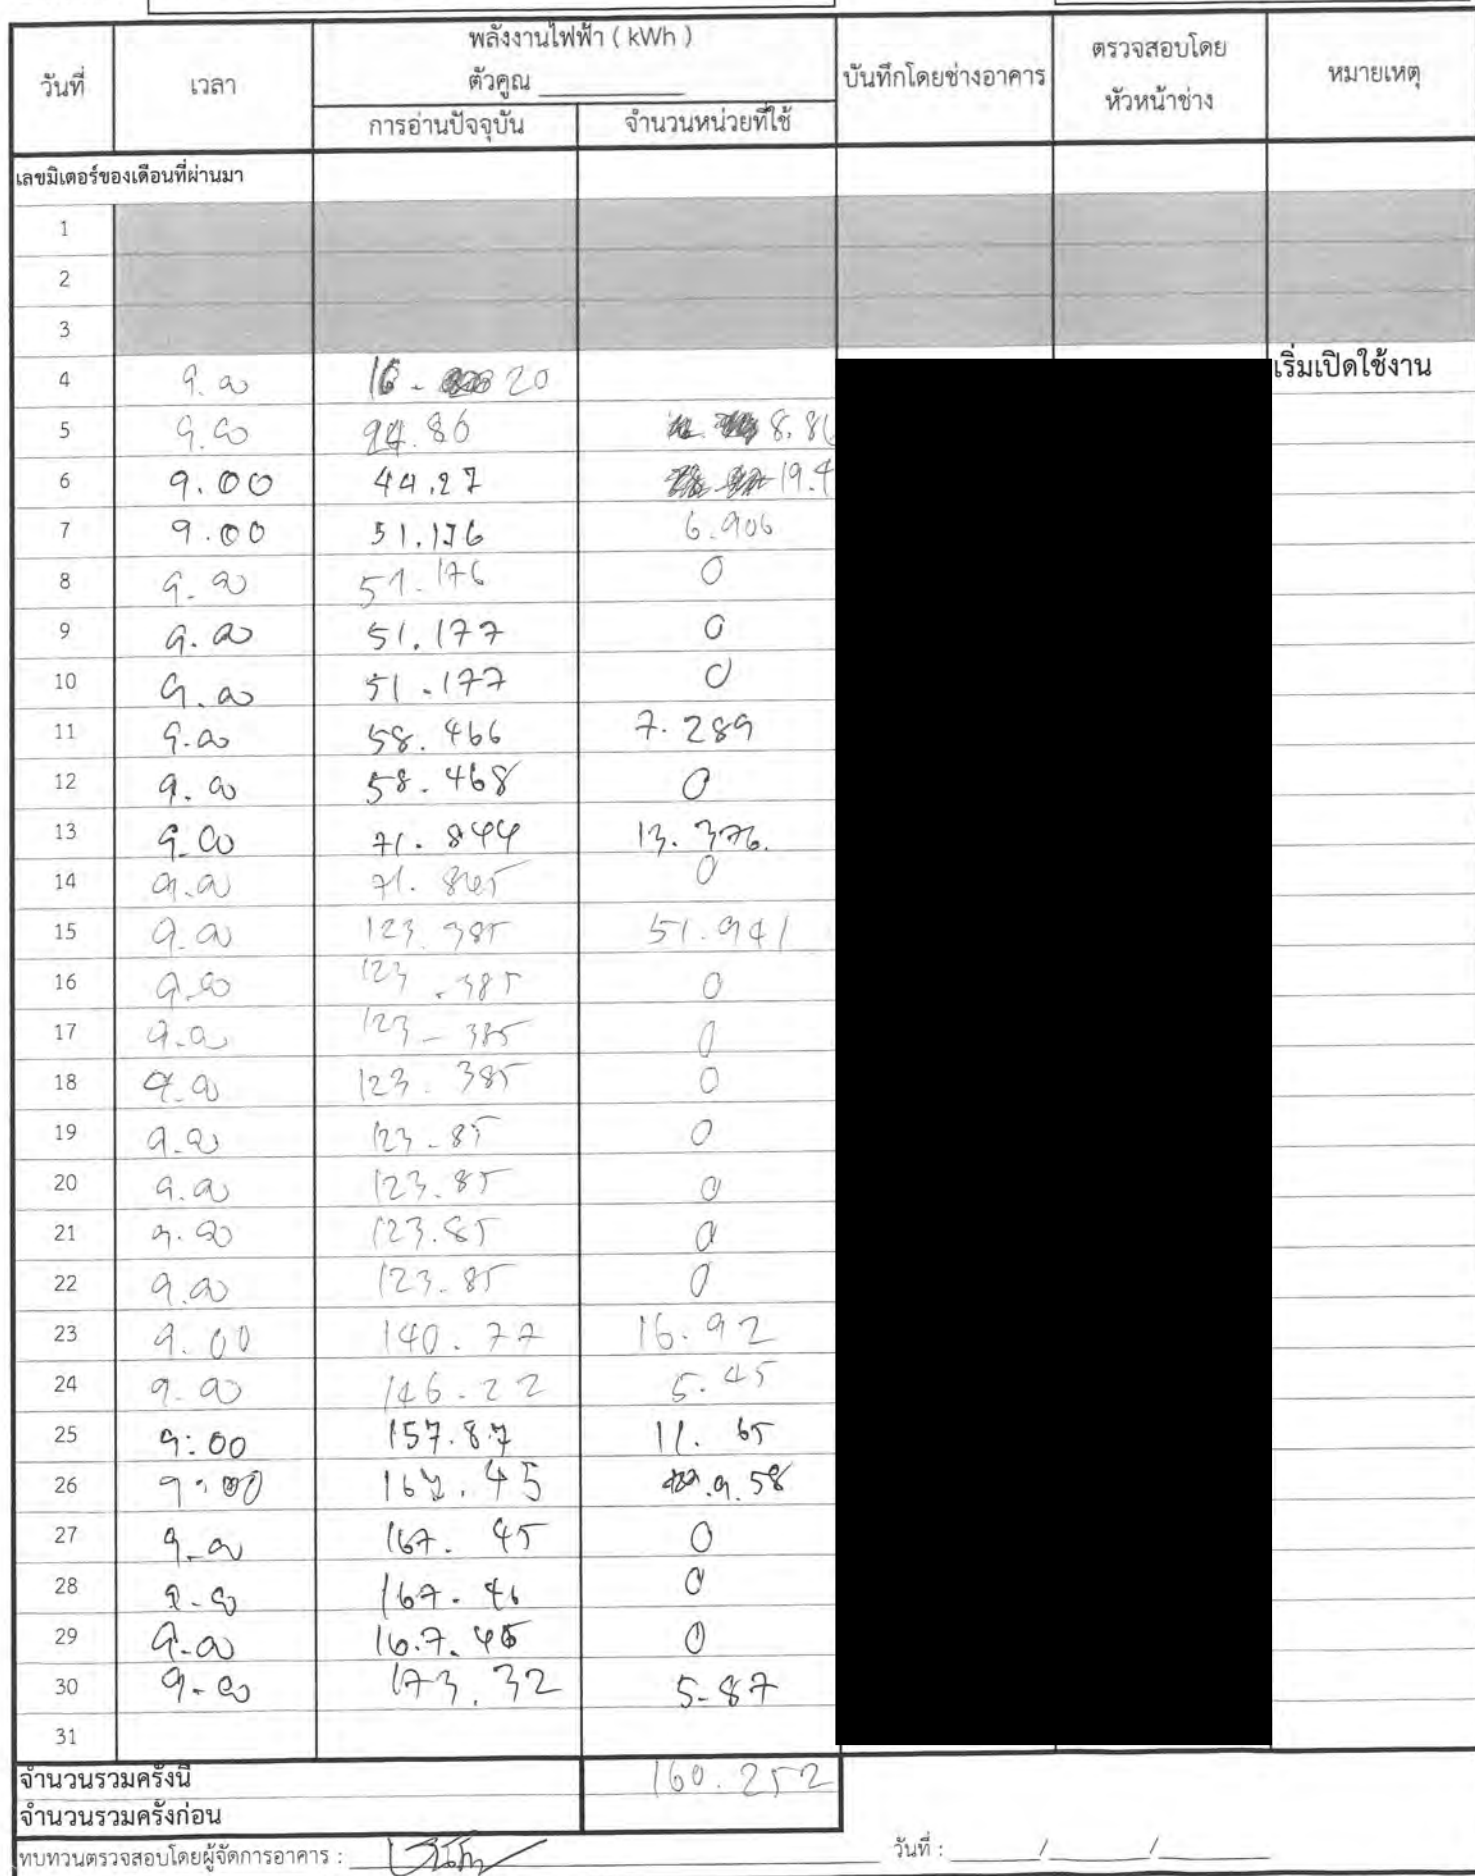 พลังงานไฟฟ้า ( kWh )
ตัวคูณ
วันที่ เวลา บันทึกโดยช่างอาคาร ตรวจสอบโดย หัวหน้าช่าง หมายเหตุ
การอ่านปัจจุบัน จำนวนหน่วยที่ใช้
เลขมิเตอร์ของเดือนที่ผ่านมา
1
2
3
4 9.00 16.20 เริ่มเปิดใช้งาน
5 9.00 24.86 8.86
6 9.00 44.27 19.4
7 9.00 51.176 6.906
8 9.00 51.176 0
9 9.00 51.177 0
10 9.00 51.177 0
11 9.00 58.466 7.289
12 9.00 58.468 0
13 9.00 71.844 13.376.
14 9.00 71.845 0
15 9.00 123.385 51.941
16 9.00 123.385 0
17 9.00 123-385 0
18 9.00 123.385 0
19 9.00 123-85 0
20 9.00 123.85 0
21 9.00 123.85 0
22 9.00 123-85 0
23 9.00 140.77 16.92
24 9-00 146-22 5.45
25 9:00 157.87 11.65
26 9:00 167.45 9.58
27 9-00 167.45 0
28 9-00 167.46 0
29 9-00 167.45 0
30 9-00 173.32 5-87
31
จำนวนรวมครั้งนี้ 160.252
จำนวนรวมครั้งก่อน
ทบทวนตรวจสอบโดยผู้จัดการอาคาร : วันที่ : / /